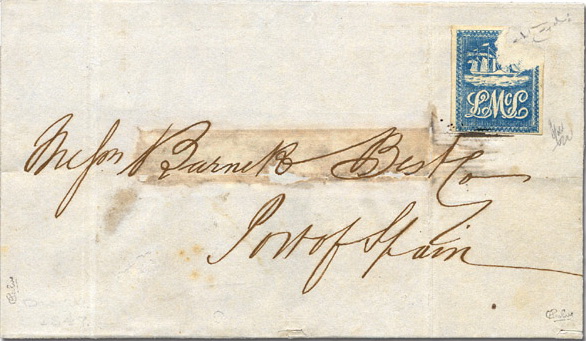 LMcL
Messrs Burnett Best Co
Port of Spain